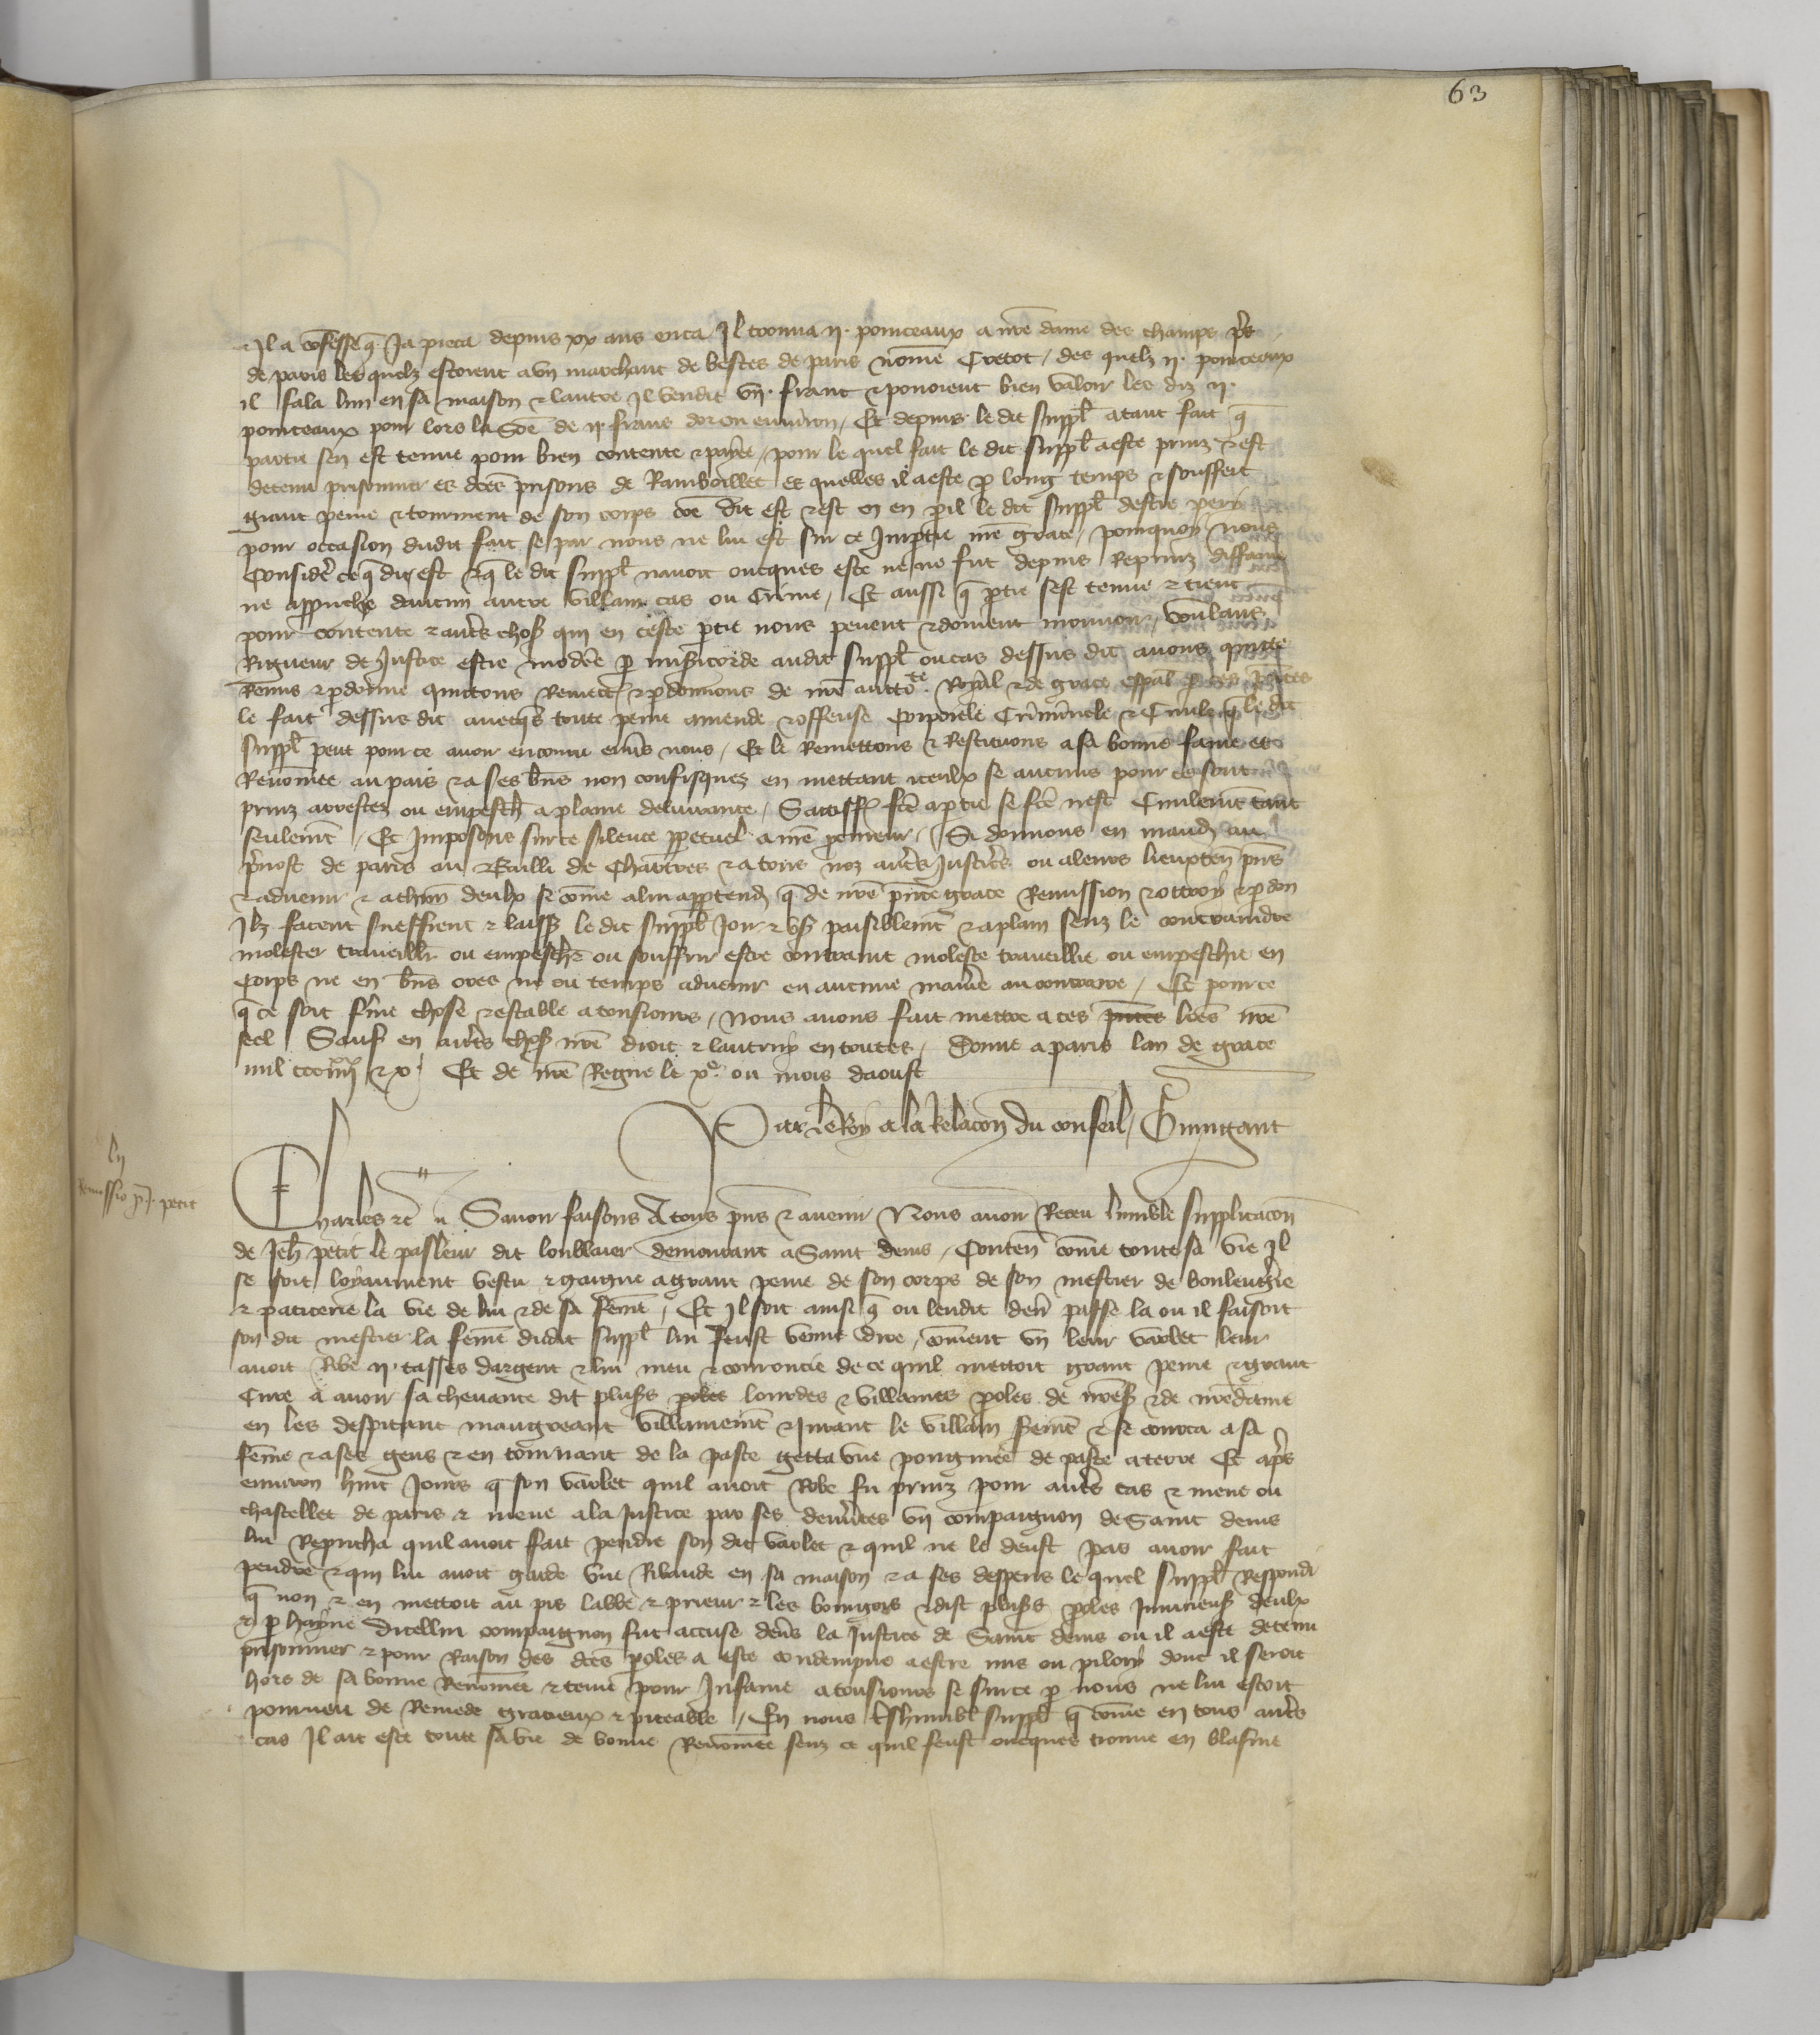 63
Il a confesse q̃ Ja pieca depuis xx ans enca Il trouua ii. pourceaux a nr̃e dame des champs pr̃s
de paris les quelz estoient a vn marchant de bestes de paris nom̃e Cretot / des quelz ii. pourceaux
il sala lun en sa maison & lautre Il vendit vn. franc & pouoient bien valoir les diz ii.
pourceaux pour lors la som̃e de ii frans dor ou enuiron / Et depuis le dit suppl̃ a tant fait q̃
partie sen est tenue pour bien contente & paiee / pour le quel fait le dit suppl̃ a este prins & est
detenu prisonnier es dc̃es prisons de Ramboillet es quelles il a este p long temps & souffert
grant peine & tourment de son corps com̃e dit est & est en peril le dit suppl̃ destre peri
pour occasion dudit fait se par nous ne lui est sur ce Impartie nr̃e grace / pourquoy nous
Consider̃ ce q̃ dit est & q̃ le dit suppl̃ nauoit oncques este ne ne fut depuis Reprins diffame
ne approuche daucun autre villain cas ou Crime / Et aussi q̃ ptie sest tenue & tient
pour contente & autr̃s choses qui en ceste ptie nous peuent & doiuent mouuoir / voulans
Rigueur de Justice estre moderee p misericorde audit suppl̃ ou cas dessus dit auons quitte
Remis & pdonne quittons Remett̃ & pdonnons de nr̃e auctote. Royal & de grace esp̃al p ces pñtes
le fait dessus dit auecqs toute peine amende & offense Corporele Criminele & Ciuile q̃ le dit
suppl̃ peut pour ce auoir encouru enuers nous / Et le Remettons & Restituons a sa bonne fame et
Renom̃ee au pais & a ses biẽs non confisquez en mettant iceulx se aucuns pour ce sont
prins arrestez ou empesch̃ a plaine deliurance / Satisff̃ fc̃e a ptie se fc̃e nest Ciuilem̃t tant
seulem̃t / Et Imposons sur ce silence ppetuel a nr̃e procureur / Si donnons en mand̃ au
preuost de paris au Bailli de Chartres & a tous noz autr̃s Justic̃rs ou a leurs lieuxten̄ pñs
& aduenir & a chũn deulx se com̃e a lui apptend̃ q̃ de nr̃e pñte grace Remission & ottroy & pdon
Ilz facent sueffrent & laiss̃ le dit suppl̃ Joir & vser paisiblem̃t & a plain senz le contraindre
molester trauaillr̃ ou empeschr̃ ou souffrir estre contraint moleste trauaillie ou empeschie en
Corps ne en biẽs ores ne ou temps aduenir en aucune manie͂re au contraire / Et pour ce
q̃ ce soit ferme chose & estable a tousiours / Nous auons fait mettre a ces pñtes lr̃es nr̃e
seel Sauf en autr̃s choses nr̃e droit & lautruy en toutes / Donne a paris lan de grace
mil ccc iiiixx & x. Et de nr̃e Regne le xe. ou mois daoust
Par le Roy a la Relacon du conseil / Guingant
lij
Remissio p J. petit
Charles &c̃ Sauoir faisons A tous pñs & auenir Nous auoir Receu lumble supplicacion
de Jeh̃ petit le pasteur dit loublaier demourant a Saint denis / Conten̄ com̃e toute sa vie Il
se soit loyaument vestu & gaigne a grant peine de son corps de son mestier de boulengerie
& paticerie la vie de lui & de sa fem̃e / Et Il soit ainsi q̃ ou lendit derr̃ passe la ou il faisoit
son dit mestier la fem̃e dudit suppl̃ lui feust venue dire / com̃ent vn leur varlet leur
auoit Robe ii. tasses dargent & lui meu & courroucie de ce quil mettoit grant peine & grant
Cure a auoir sa cheuance dit plus̃s poles lourdes & villaines poles de nr̃e s̃ & de nr̃e dame
en les despitant maugreant villainem̃t & Jurant le villain serem̃t & se courca a sa
fem̃e & a ses gens & en tournant de la paste getta vne pongnee de paste a terre Et apr̃s
enuiron huit Jours q̃ son varlet quil auoit Robe fu prins pour autr̃s cas & mene ou
chastellet de paris & mene a la Justice par ses demerites vn compaignon de Saint denis
lui Reproucha quil auoit fait pendre son dit varlet & quil ne le deust pas auoir fait
pendre & qui lui auoit garde vne Ribaude en sa maison & a ses despens le quel suppl̃ Respondi
q̃ non & en mettoit au pis labbe & prieur & les bourgois & dist plus̃s poles Iniurieus̃ deulx
& p hayne dicellui compaignon fut accuse deuers la Justice de Saint denis ou il a este detenu
prisonnier & pour Raison des dc̃es poles a este condempne a estre mis ou pilory dont il seroit
hors de sa bonne Renom̃ee & tenu pour Infame a tousiours se sur ce p nous ne lui estoit
pourueu de Remede gracieux & piteable / En nous tr̃shumbl̃ suppl̃ q̃ com̃e en tous autr̃s
cas Il ait este toute sa vie de bonne Renom̃ee senz ce quil feust oncques trouue en blasme